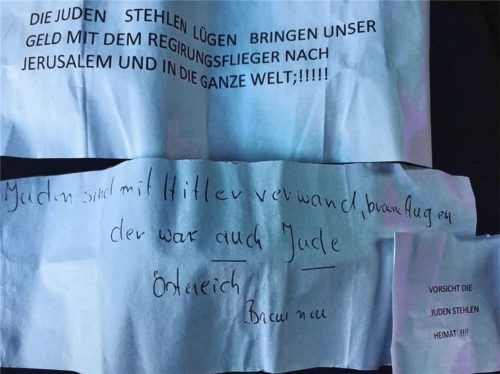 DIE JUDEN STEHLEN LÜGEN BRINGEN UNSER
GELD MIT DEM REGIRUNGSFLIEGER NACH
JERUSALEM UND IN DIE GANZE WELT;!!!!!
Juden sind mit Hitler verwand, braune Augen
der war auch Jude
Östereich
Braunau
VORSICHT DIE
JUDEN STEHLEN
HEIMAT .!!!!